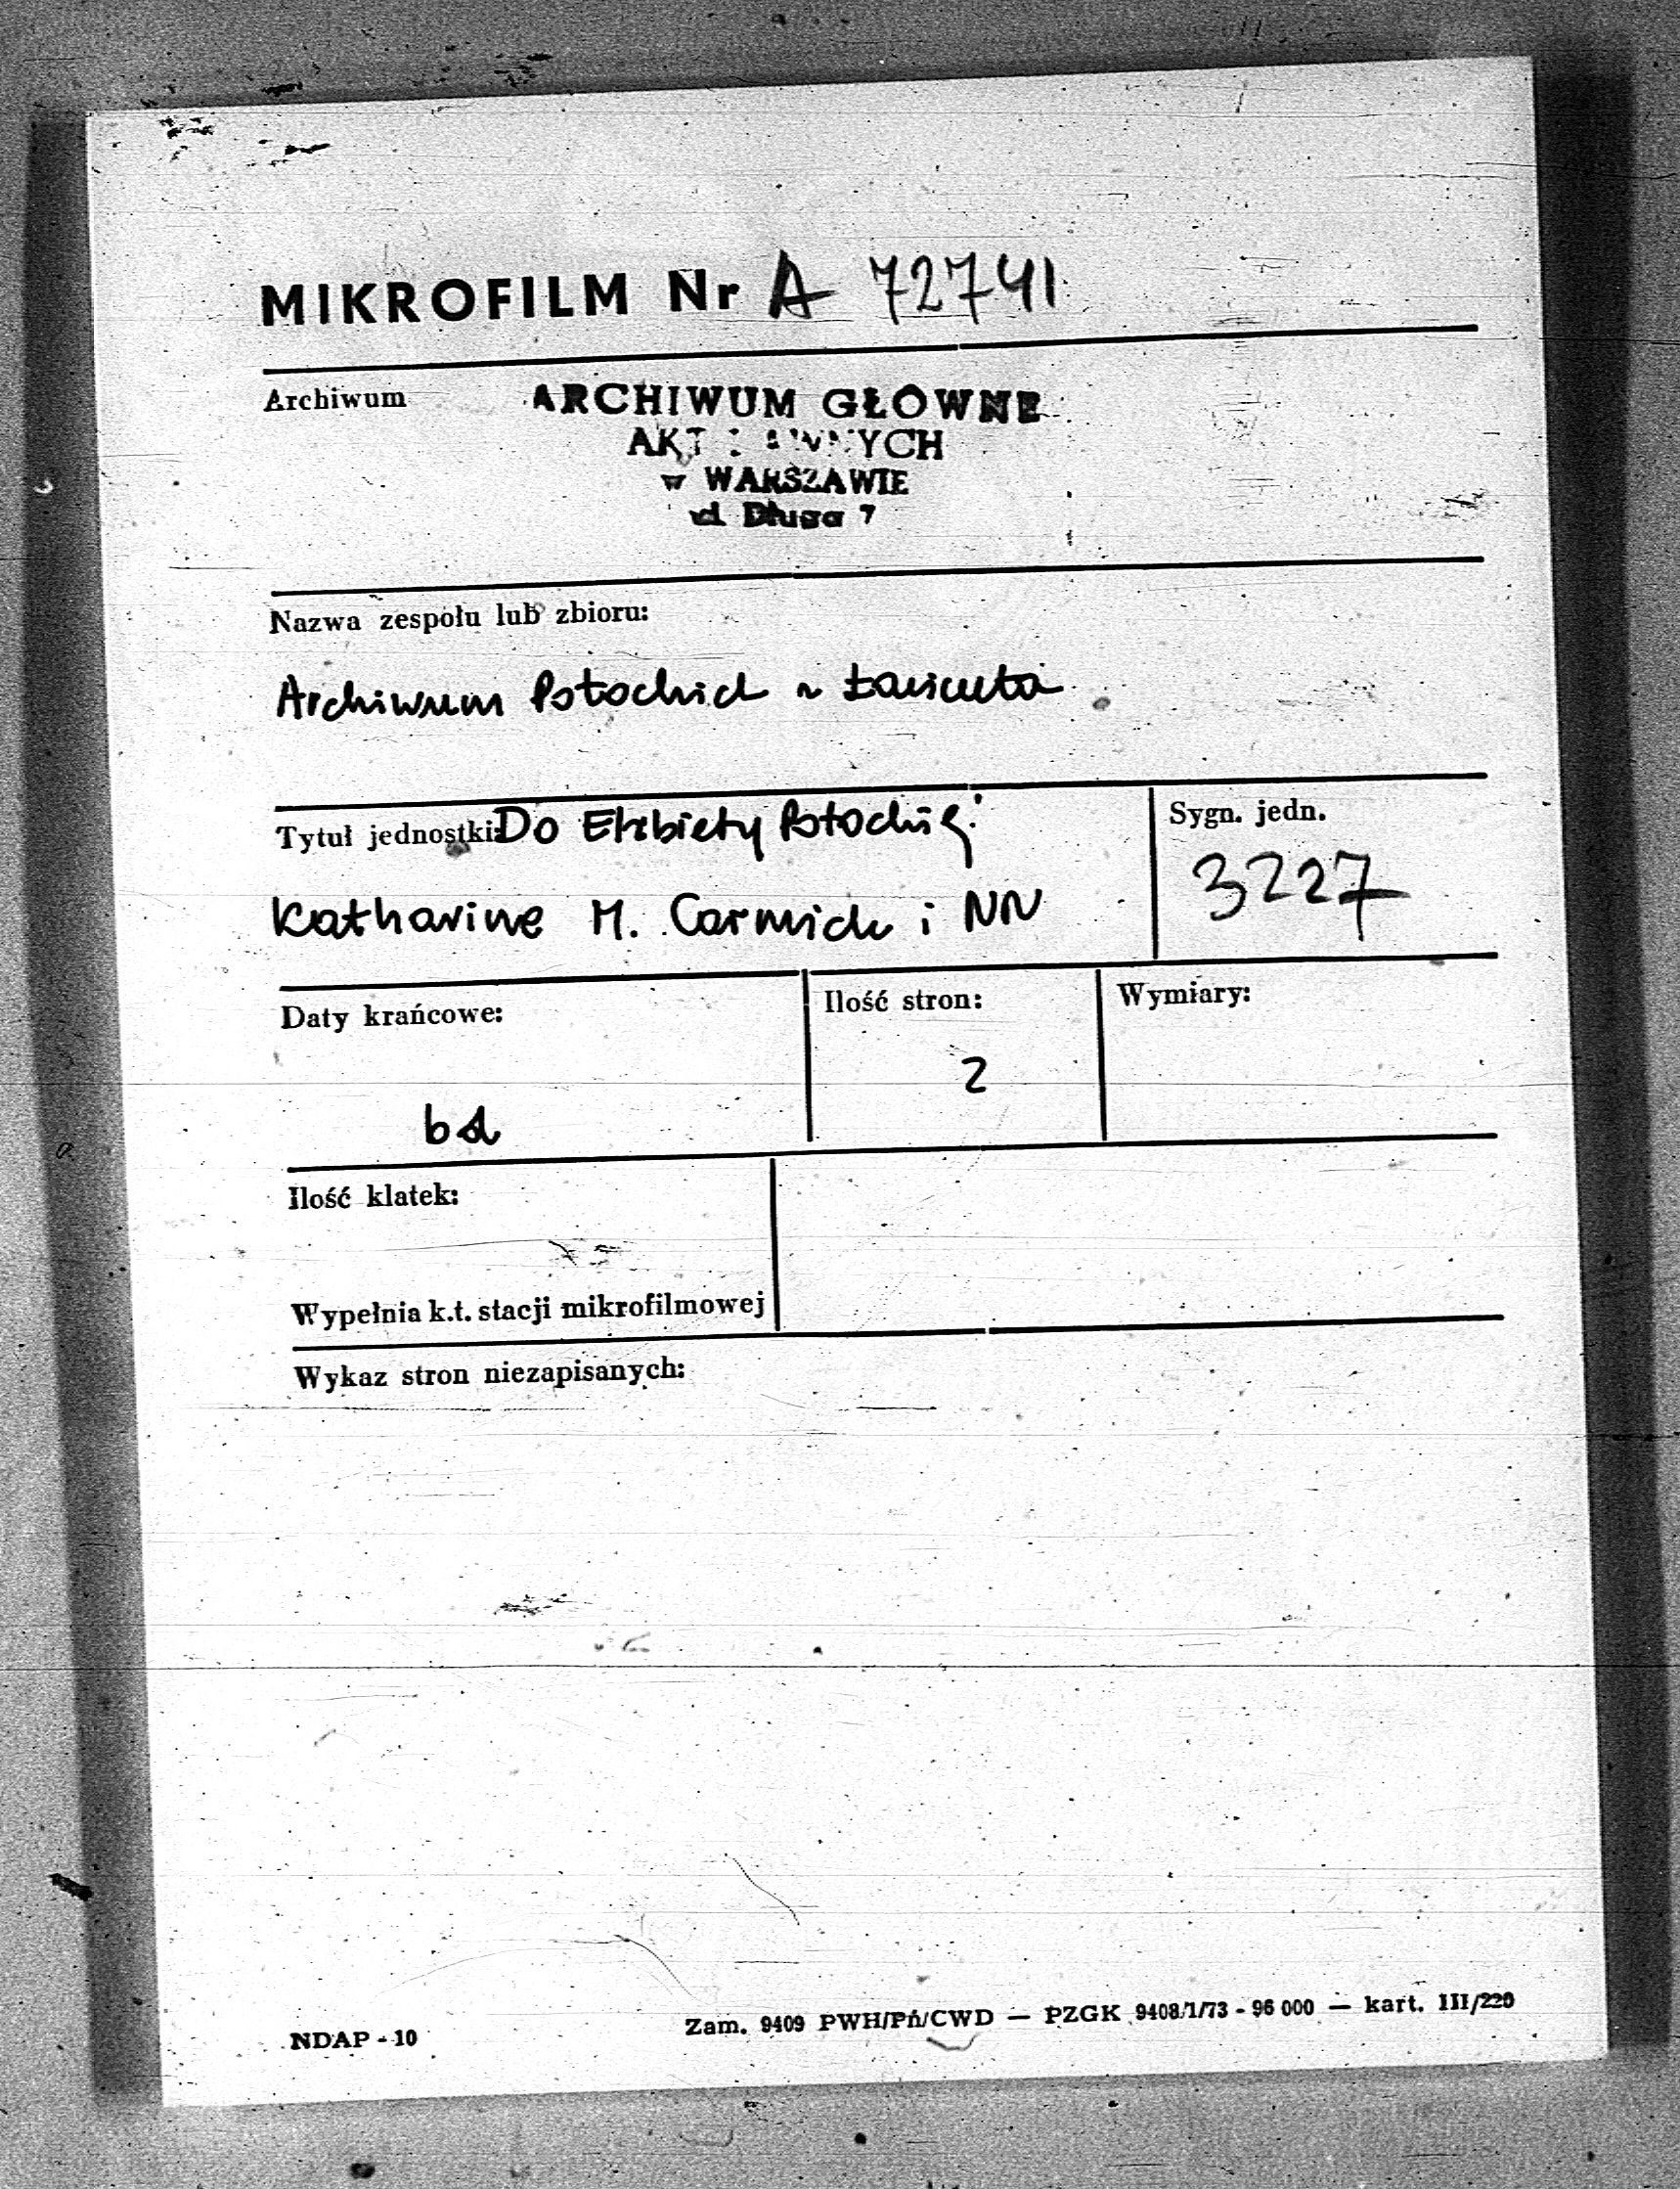 MIKROFILM Nr A 72741
Archiwum
ARCHIWUM GŁÓWNE
AKT DAWNYCH
w WARSZAWIE
ul. Długa 7
Nazwa zespołu lub zbioru:
Archiwum Potockich z Łańcuta
Tytuł jednostki: Do Elżbiety Potockiej:
Katharine M. i NN
Sygn. jedn.
3227
Daty krańcowe:
bd
Ilość stron:
2
Wymiary:
Ilość klatek:
Wypełnia k.t. stacji mikrofilmowej
Wykaz stron niezapisanych:
NDAP - 10
Zam. 9409 PWH/Pń/CWD — PZGK 9408/1/73 - 96 000 — kart. III/220